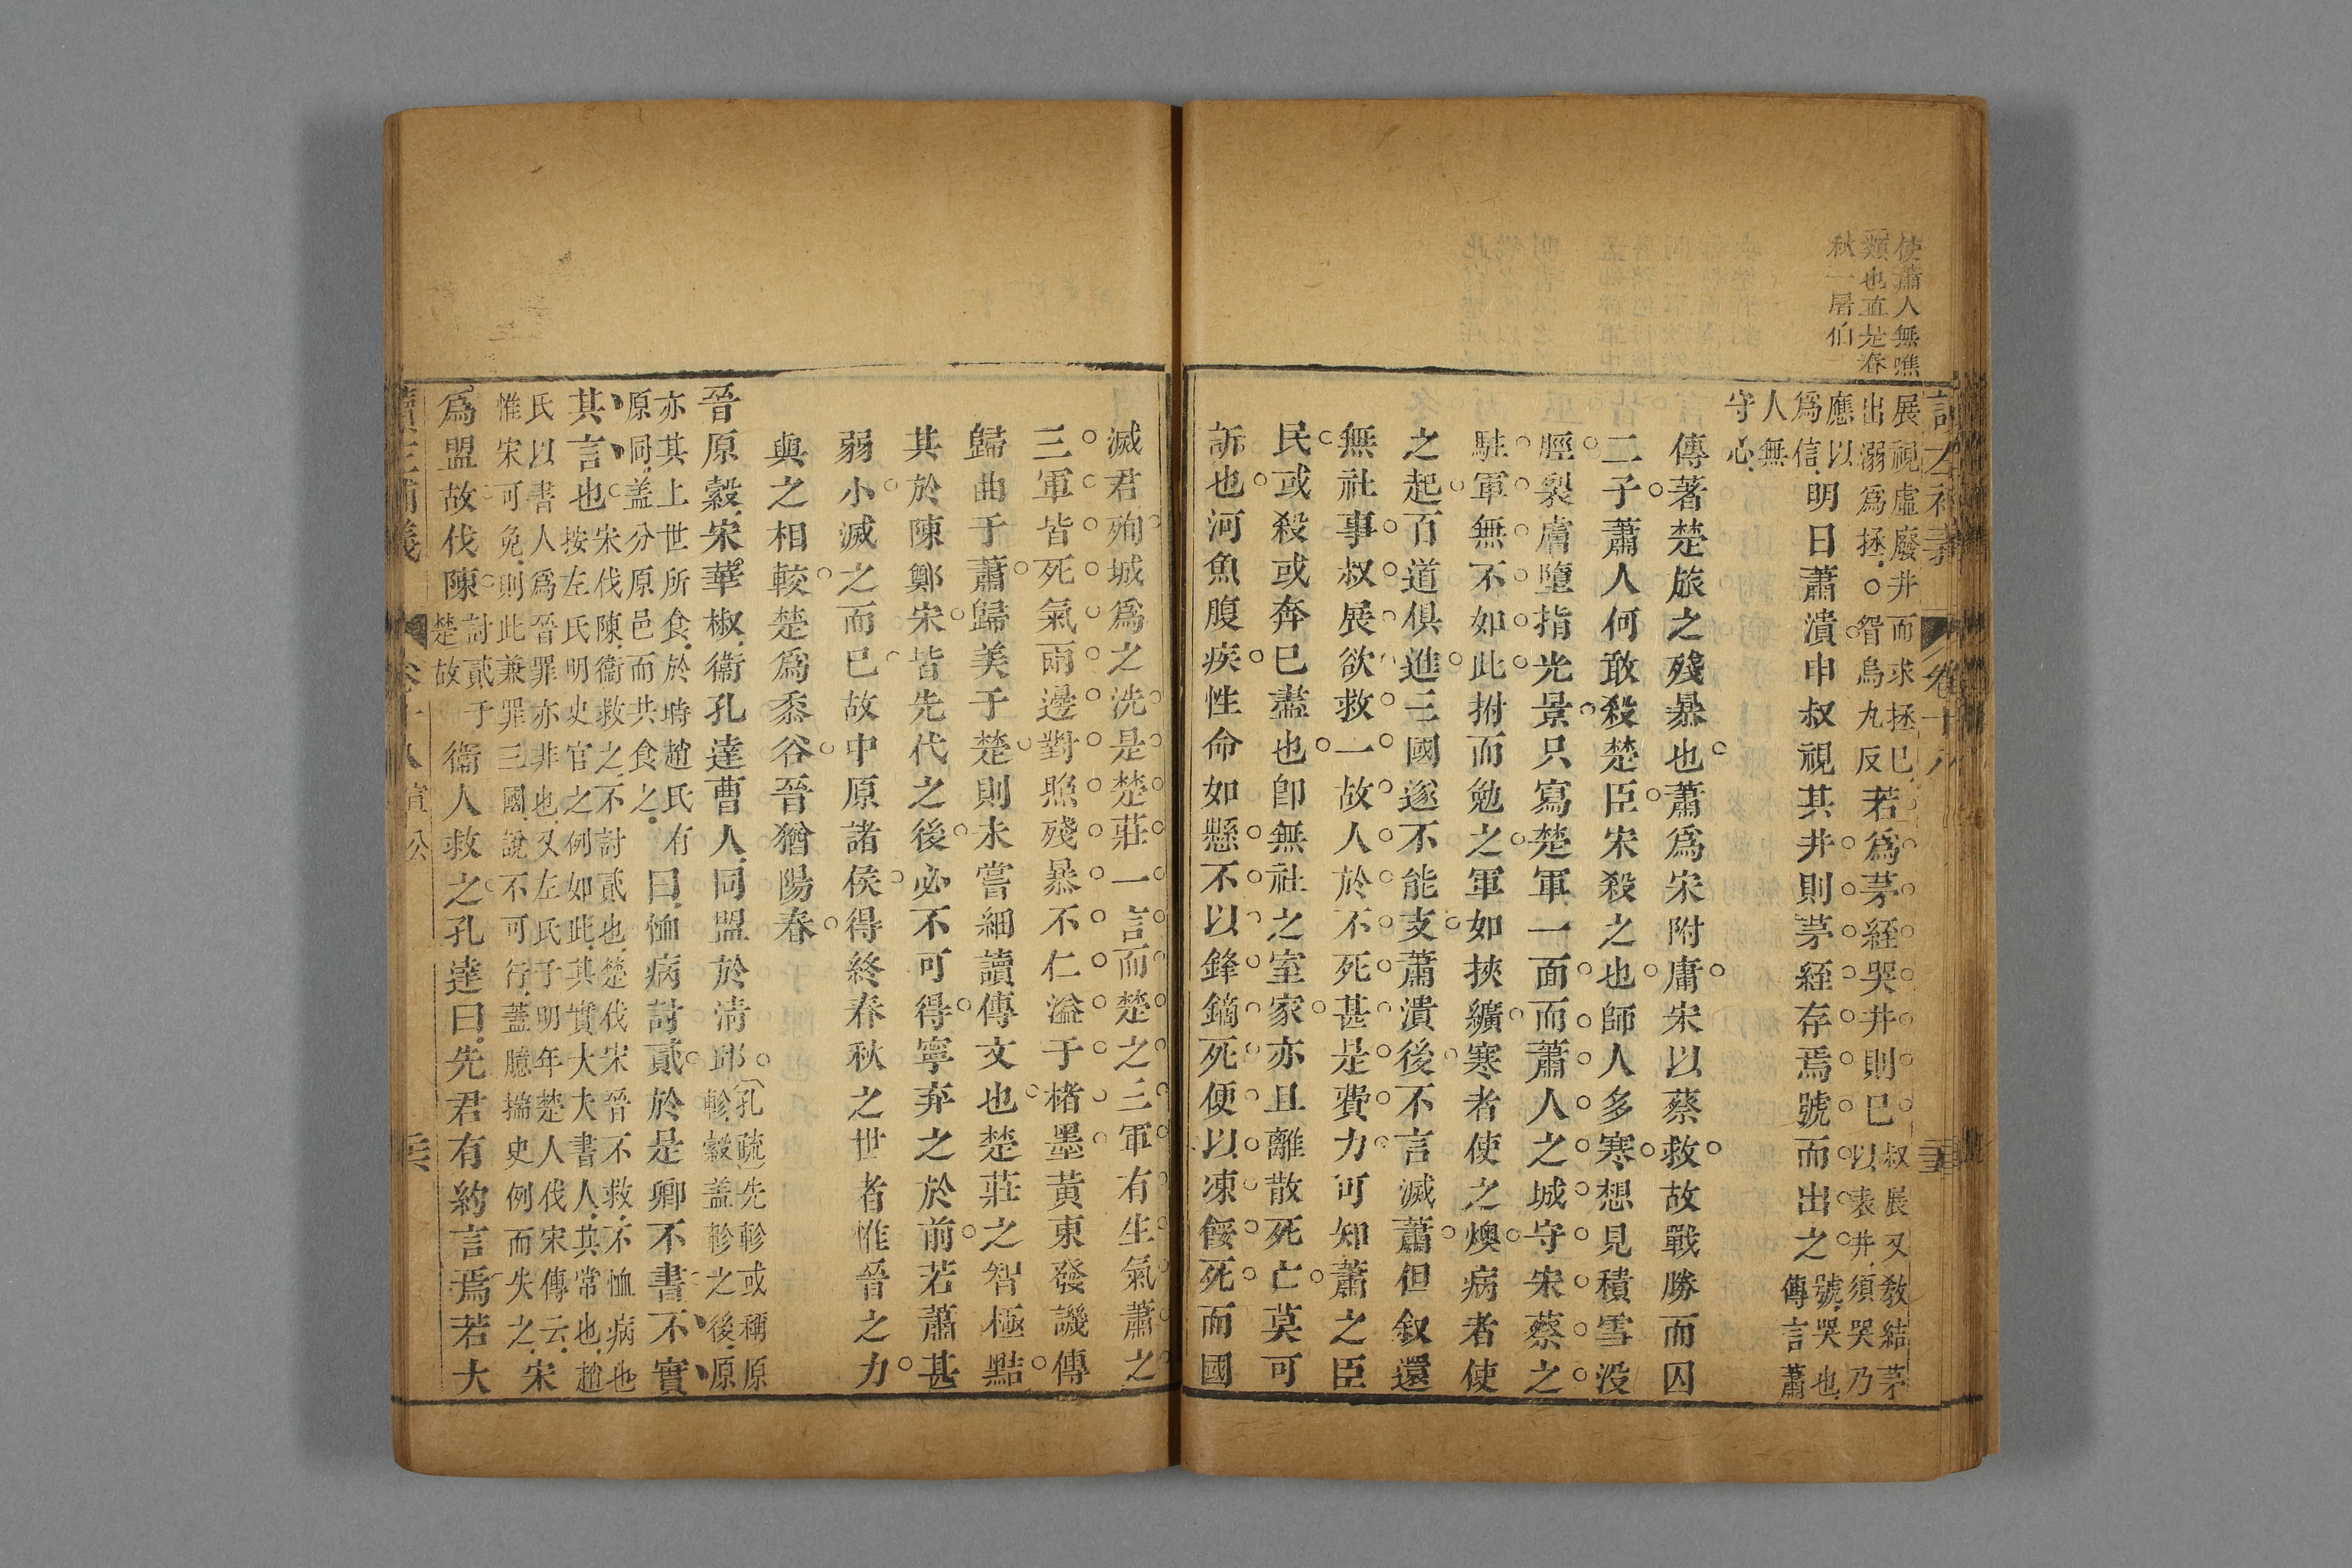 使蕭人無噍
類也直是春
秋一屠伯
展視虛廢井而求拯已
出溺爲拯○眢烏九反
若爲茅絰哭井則已
叔展又敎結茅
以表井須哭乃
應以
爲信
明日蕭潰申叔視其井則茅絰存焉號而出之
號哭也
傳言蕭
人無
守心
傳著楚旅之殘暴也蕭爲宋附庸宋以蔡救故戰勝而囚
二子蕭人何敢殺楚臣宋殺之也師人多寒想見積雪没
脛裂膚墮指光景只寫楚軍一面而蕭人之城守宋蔡之
駐軍無不如此拊而勉之軍如挾纊寒者使之燠病者使
之起百道俱進三國遂不能支蕭潰後不言滅蕭但叙還
無社事叔展欲救一故人於不死甚是費力可知蕭之臣
民或殺或奔已盡也卽無社之室家亦且離散死亡莫可
訴也河魚腹疾性命如懸不以鋒鏑死便以凍餒死而國
滅君殉城爲之洗是楚莊一言而楚之三軍有生氣蕭之
三軍皆死氣兩邊對照殘暴不仁溢于楮墨黃東發譏傳
歸曲于蕭歸美于楚則未嘗細讀傳文也楚莊之智極黠
其於陳鄭宋皆先代之後必不可得寧弃之於前若蕭甚
弱小滅之而已故中原諸侯得終春秋之世者惟晉之力
與之相較楚爲黍谷晉猶陽春
晉原縠宋華椒衞孔達曹人同盟於清邱
孔疏先軫或稱原
軫縠盖軫之後原
亦其上世所食於時趙氏有
原同盖分原邑而共食之
曰恤病討貳於是卿不書不實
其言也
宋伐陳衞救之不討貳也楚伐宋晉不救不恤病也
按左氏明史官之例如此其實大夫書人其常也趙
氏以書人爲晉罪亦非也又左氏于明年楚人伐宋傳云
惟宋可免則此兼罪三國說不可行蓋臆揣史例而失之
宋
爲盟故伐陳
討貳于
楚故
衞人救之孔達曰先君有約言焉若大
卷十八 宣公